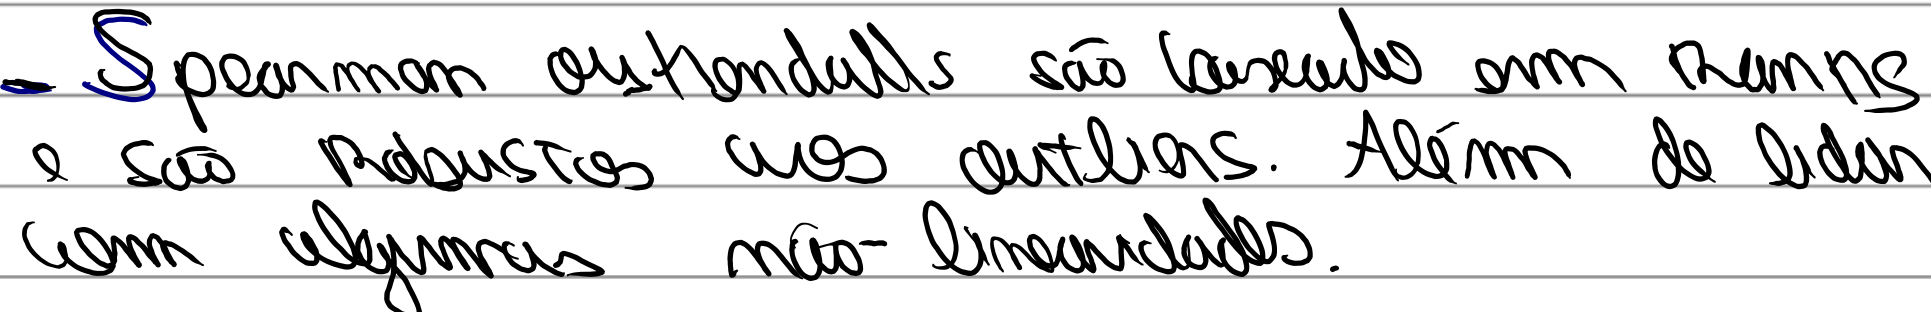 - Spearman são baseado em Ranks
e são Robustos aos outliers. Além de lidar
com algumas não-linearidades.